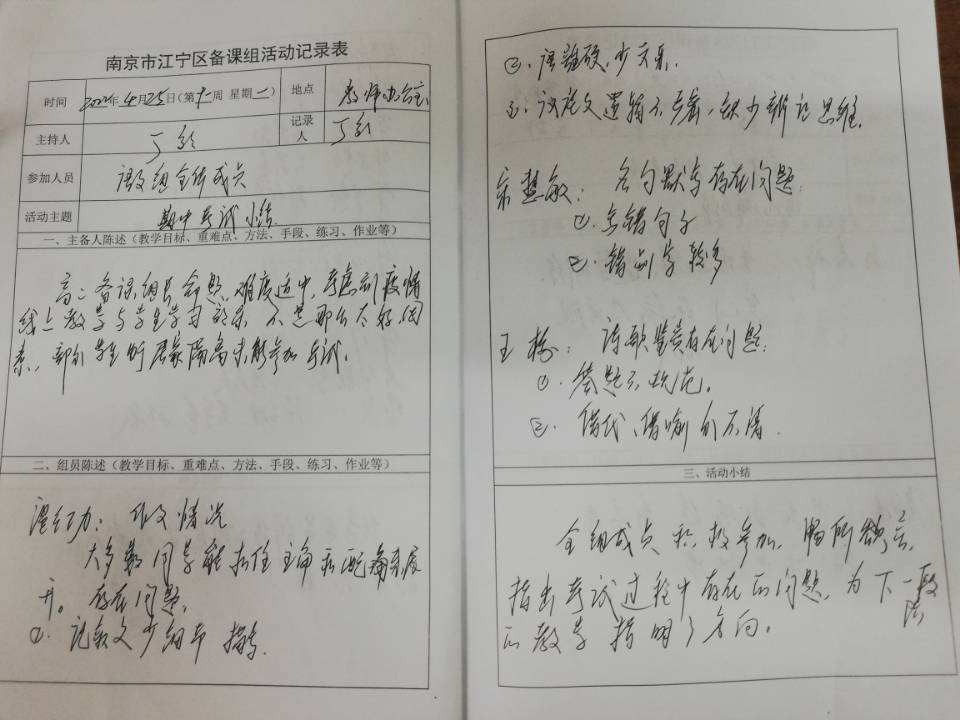 南京市江宁区备课组活动记录表
时间 2022年4月25日(第十一周 星期一) 地点 教师办公室
主持人 丁 记录人 丁
参加人员 语文组全体成员
活动主题 期中考试小结
一、主备人陈述(教学目标、重难点、方法、手段、练习、作业等)
高二备课组长命题,难度适中,考虑到疫情
线上教学与学生学习 不是那么太好 因
素,部分学生 居家隔离未能参加考试。
二、组员陈述(教学目标、重难点、方法、手段、练习、作业等)
作文情况
大多数同学能抓住主角和配角来展
开。存在问题:
①记叙文少细节描写.
②.语 硬,少文采.
③.议论文逻辑不严密,缺少辩论思维.
宋慧敏:名句默写存在问题:
①.写错句子
②.错别字较多
王栋:诗歌鉴赏存在问题:
①.答题不规范。
②.借代、借喻分不清.
三、活动小结
全组成员积极参加,畅所欲言,
指出考试过程中存在的问题,为下一段
的教学指明了方向。